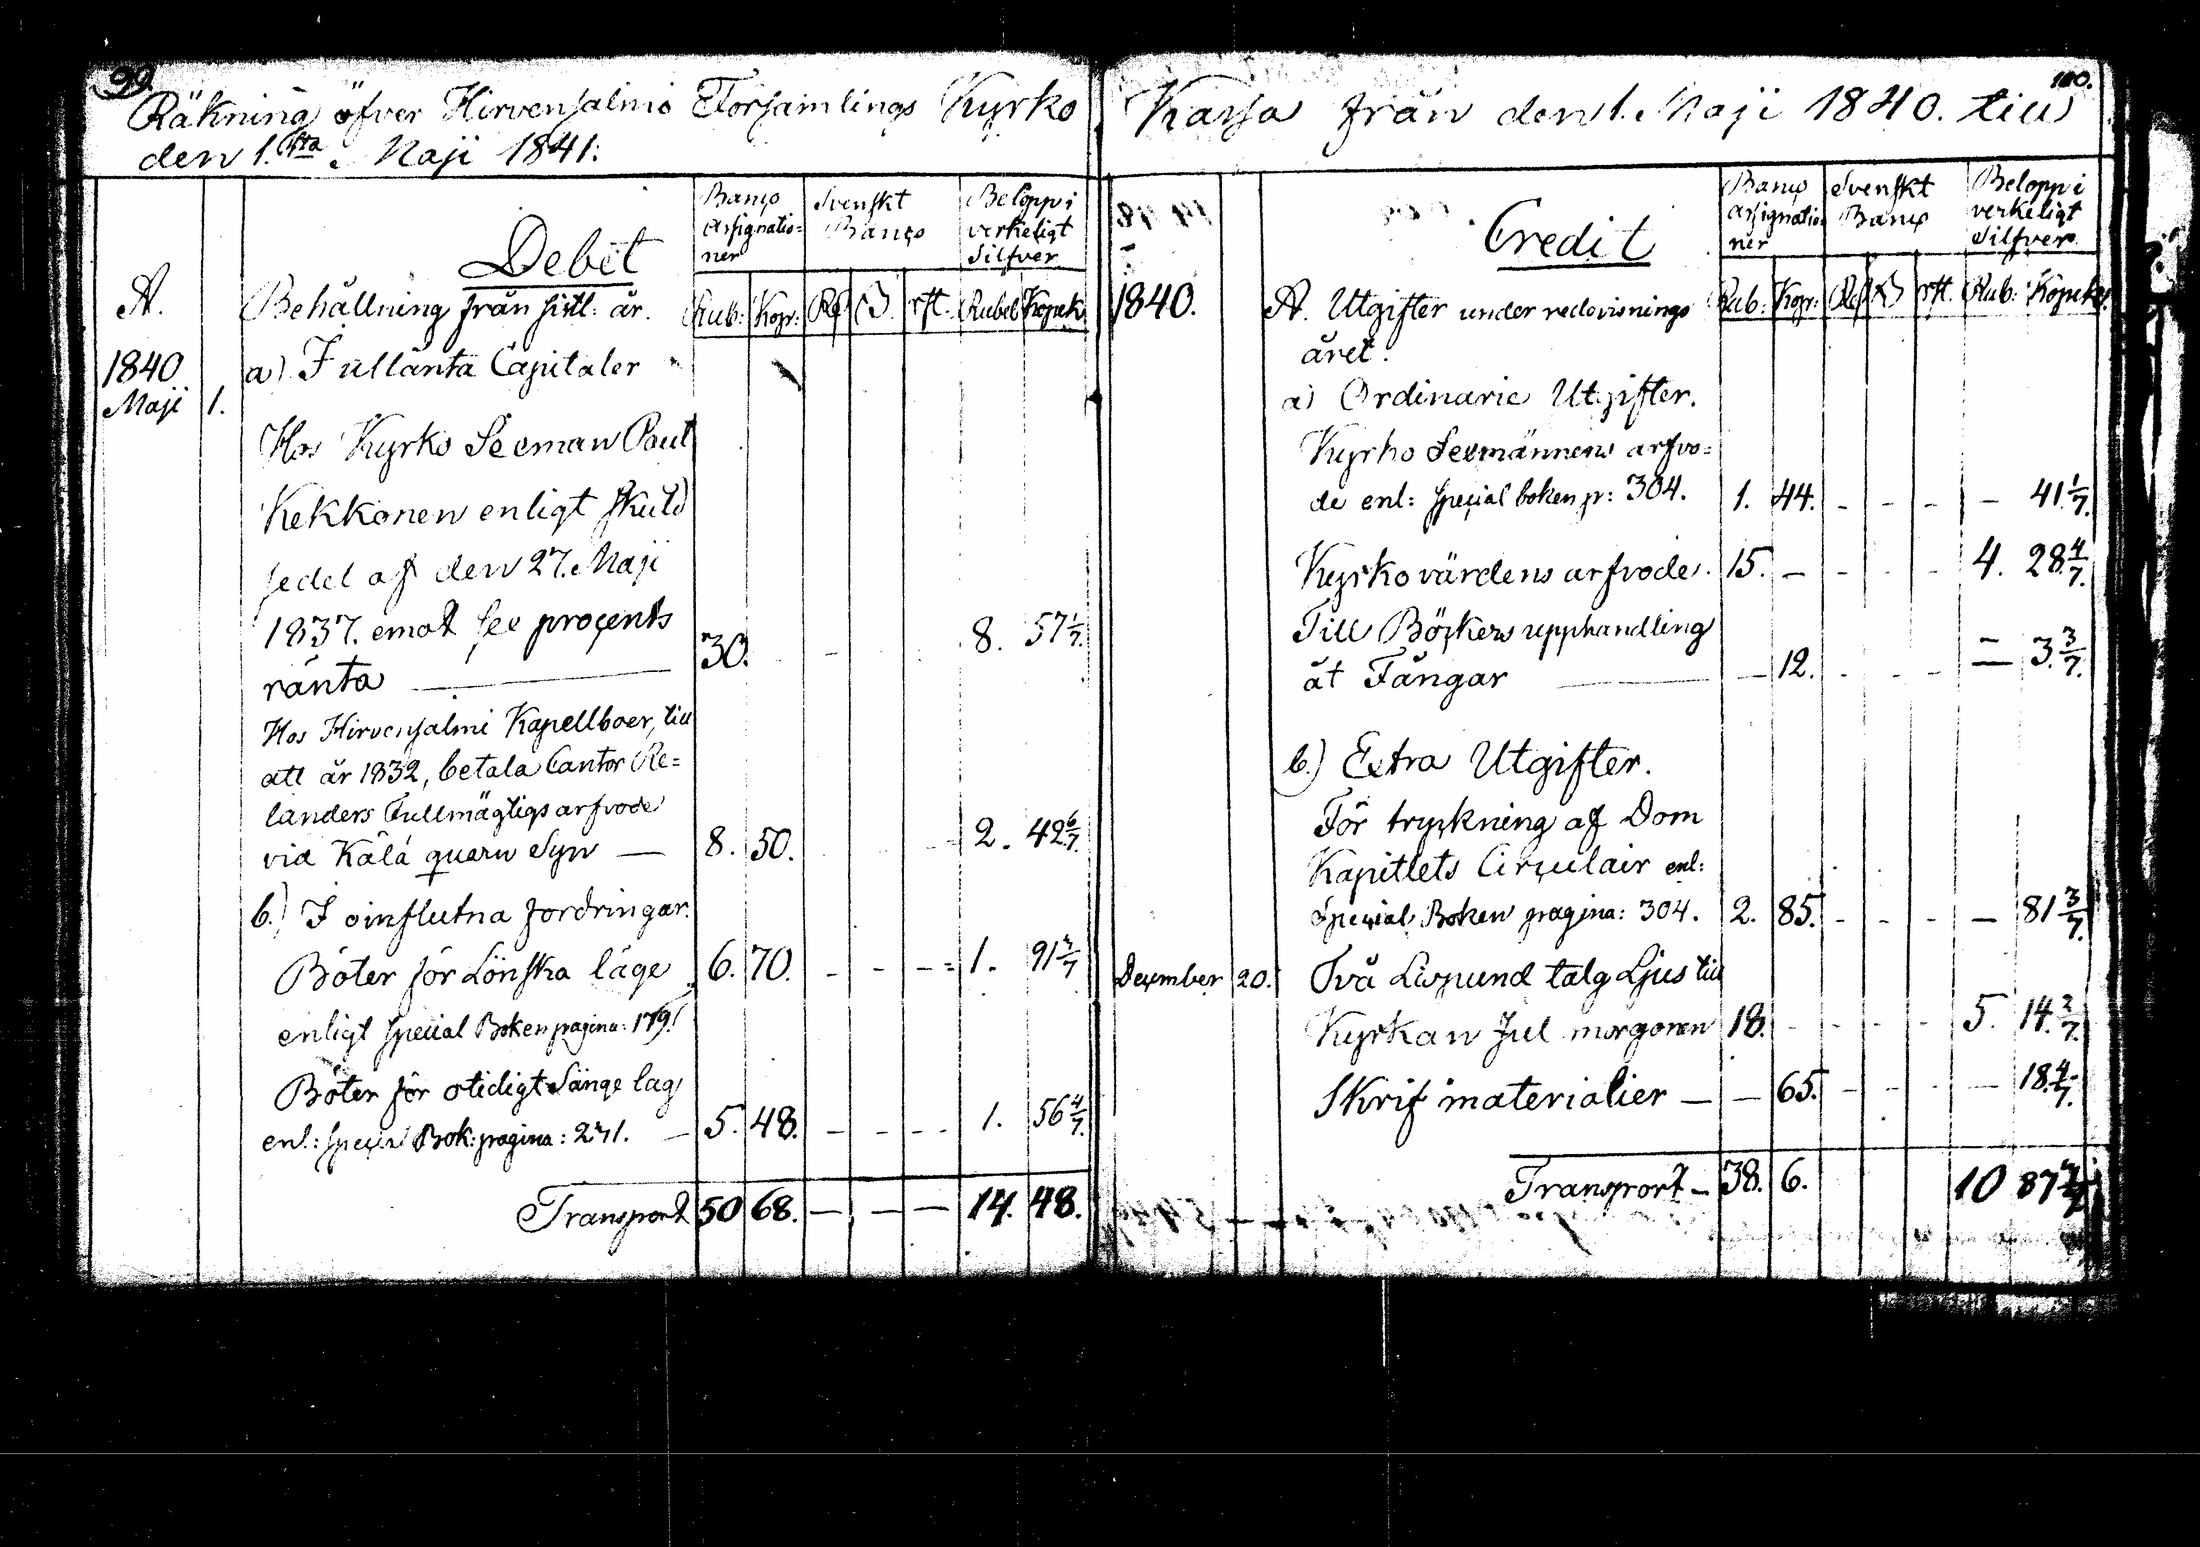 99.
Räkning öfver Hirvensalmi Församlings Kyrko
den 1.sta Maji 1841.
Banço Assignatio=ner
Svenskt Banço
Belopp i verkeligt Silfver
Debet
A. Behållning från sistl: år.
Rub: Kop: Rd ß. rst. Rubel Kopek
1840 a) I utlänta Capitaler
Maji 1.
Hos Kyrko Sexman Paul
Kekkonen enligt skuld
sedel af den 27. Maji
1837. emot sex proçents
ränta — 30. - 8. 57 1/7.
Hos Hirvensalmi Kapellboer, till
att år 1832, betala Cantor Re=
landers Fullmägtigs arfvode
vid Kälä quarn Syn — 8. 50. - 2. 42 6/7.
b.) I oinflutna fordringar.
Böter för Lönska läge 6. 70. - - - 1. 91 3/7
enligt special Boken pagina: 179.
Böter för otidigt Sänge lag
enl: special Bok: pagina: 271. — 5. 48. - - - 1. 56 4/7.
Transport 50 68. — — — 14. 48.
100.
Kassa från den 1. Maji 1840. till
Banço Assignatio ner
Svenskt Banço
Belopp i verkeligt Silfver
Credit
1840. A. Utgifter under redovisnings
Rub: Kop: Rd ß rst. Rub: Kopek
året.
a) Ordinarie Utgifter.
Kyrko Sexmännens arfvo=
de enl: special boken p: 304. 1. 44. - - - — 41 1/7.
Kyrkovärdens arfvode. 15. — - - - 4. 28 4/7.
Till Böçkers upphandling
åt Fångar — — 12. - - - — 3. 3/7.
b.) Extra Utgifter.
För tryçkning af Dom
Kapitlets Cirçulair enl:
Speçial Boken pagina: 304. 2. 85. - - - — 81 3/7.
Deçember 20. Två Lispund talg Ljus till
Kyrkan Jul morgonen 18. - - - - 5. 14. 2/7.
Skrif materialier — — 65. - - - — 18. 4/7.
Transport — 38. 6. 10 87 3/7